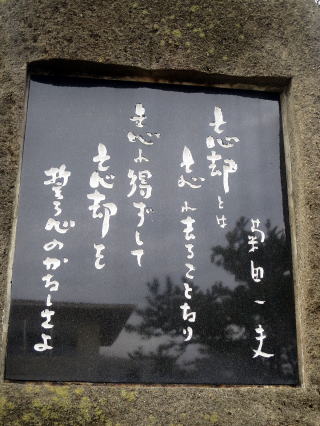 菊田一夫
忘却とは
忘れ去ることなり
忘れ得ずして
忘却を
誓う心のかなしさよ